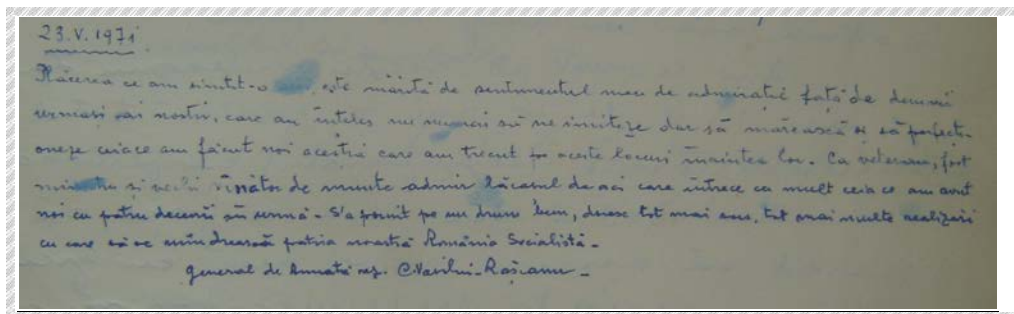 23.V.1971.
Plăcerea ce am simțit-o este mărită de sentimentul meu de admirație față de demnii
urmași ai noștri, care au înțeles nu numai să ne imiteze dar să mărească și să perfecți-
oneze ceiace am făcut noi aceștia care am trecut pe aceste locuri înaintea lor. Ca veteran, fost
ministru și vechi vînător de munte admir lăcașul de aci care întrece cu mult ceia ce am avut
noi cu patru decenii în urmă - S'a pornit pe un drum bun, doresc tot mai sus, tot mai multe realizări
cu care să se mîndrească patria noastră România Socialistă -
General de Armată rez. C. Vasiliu-Rășcanu -